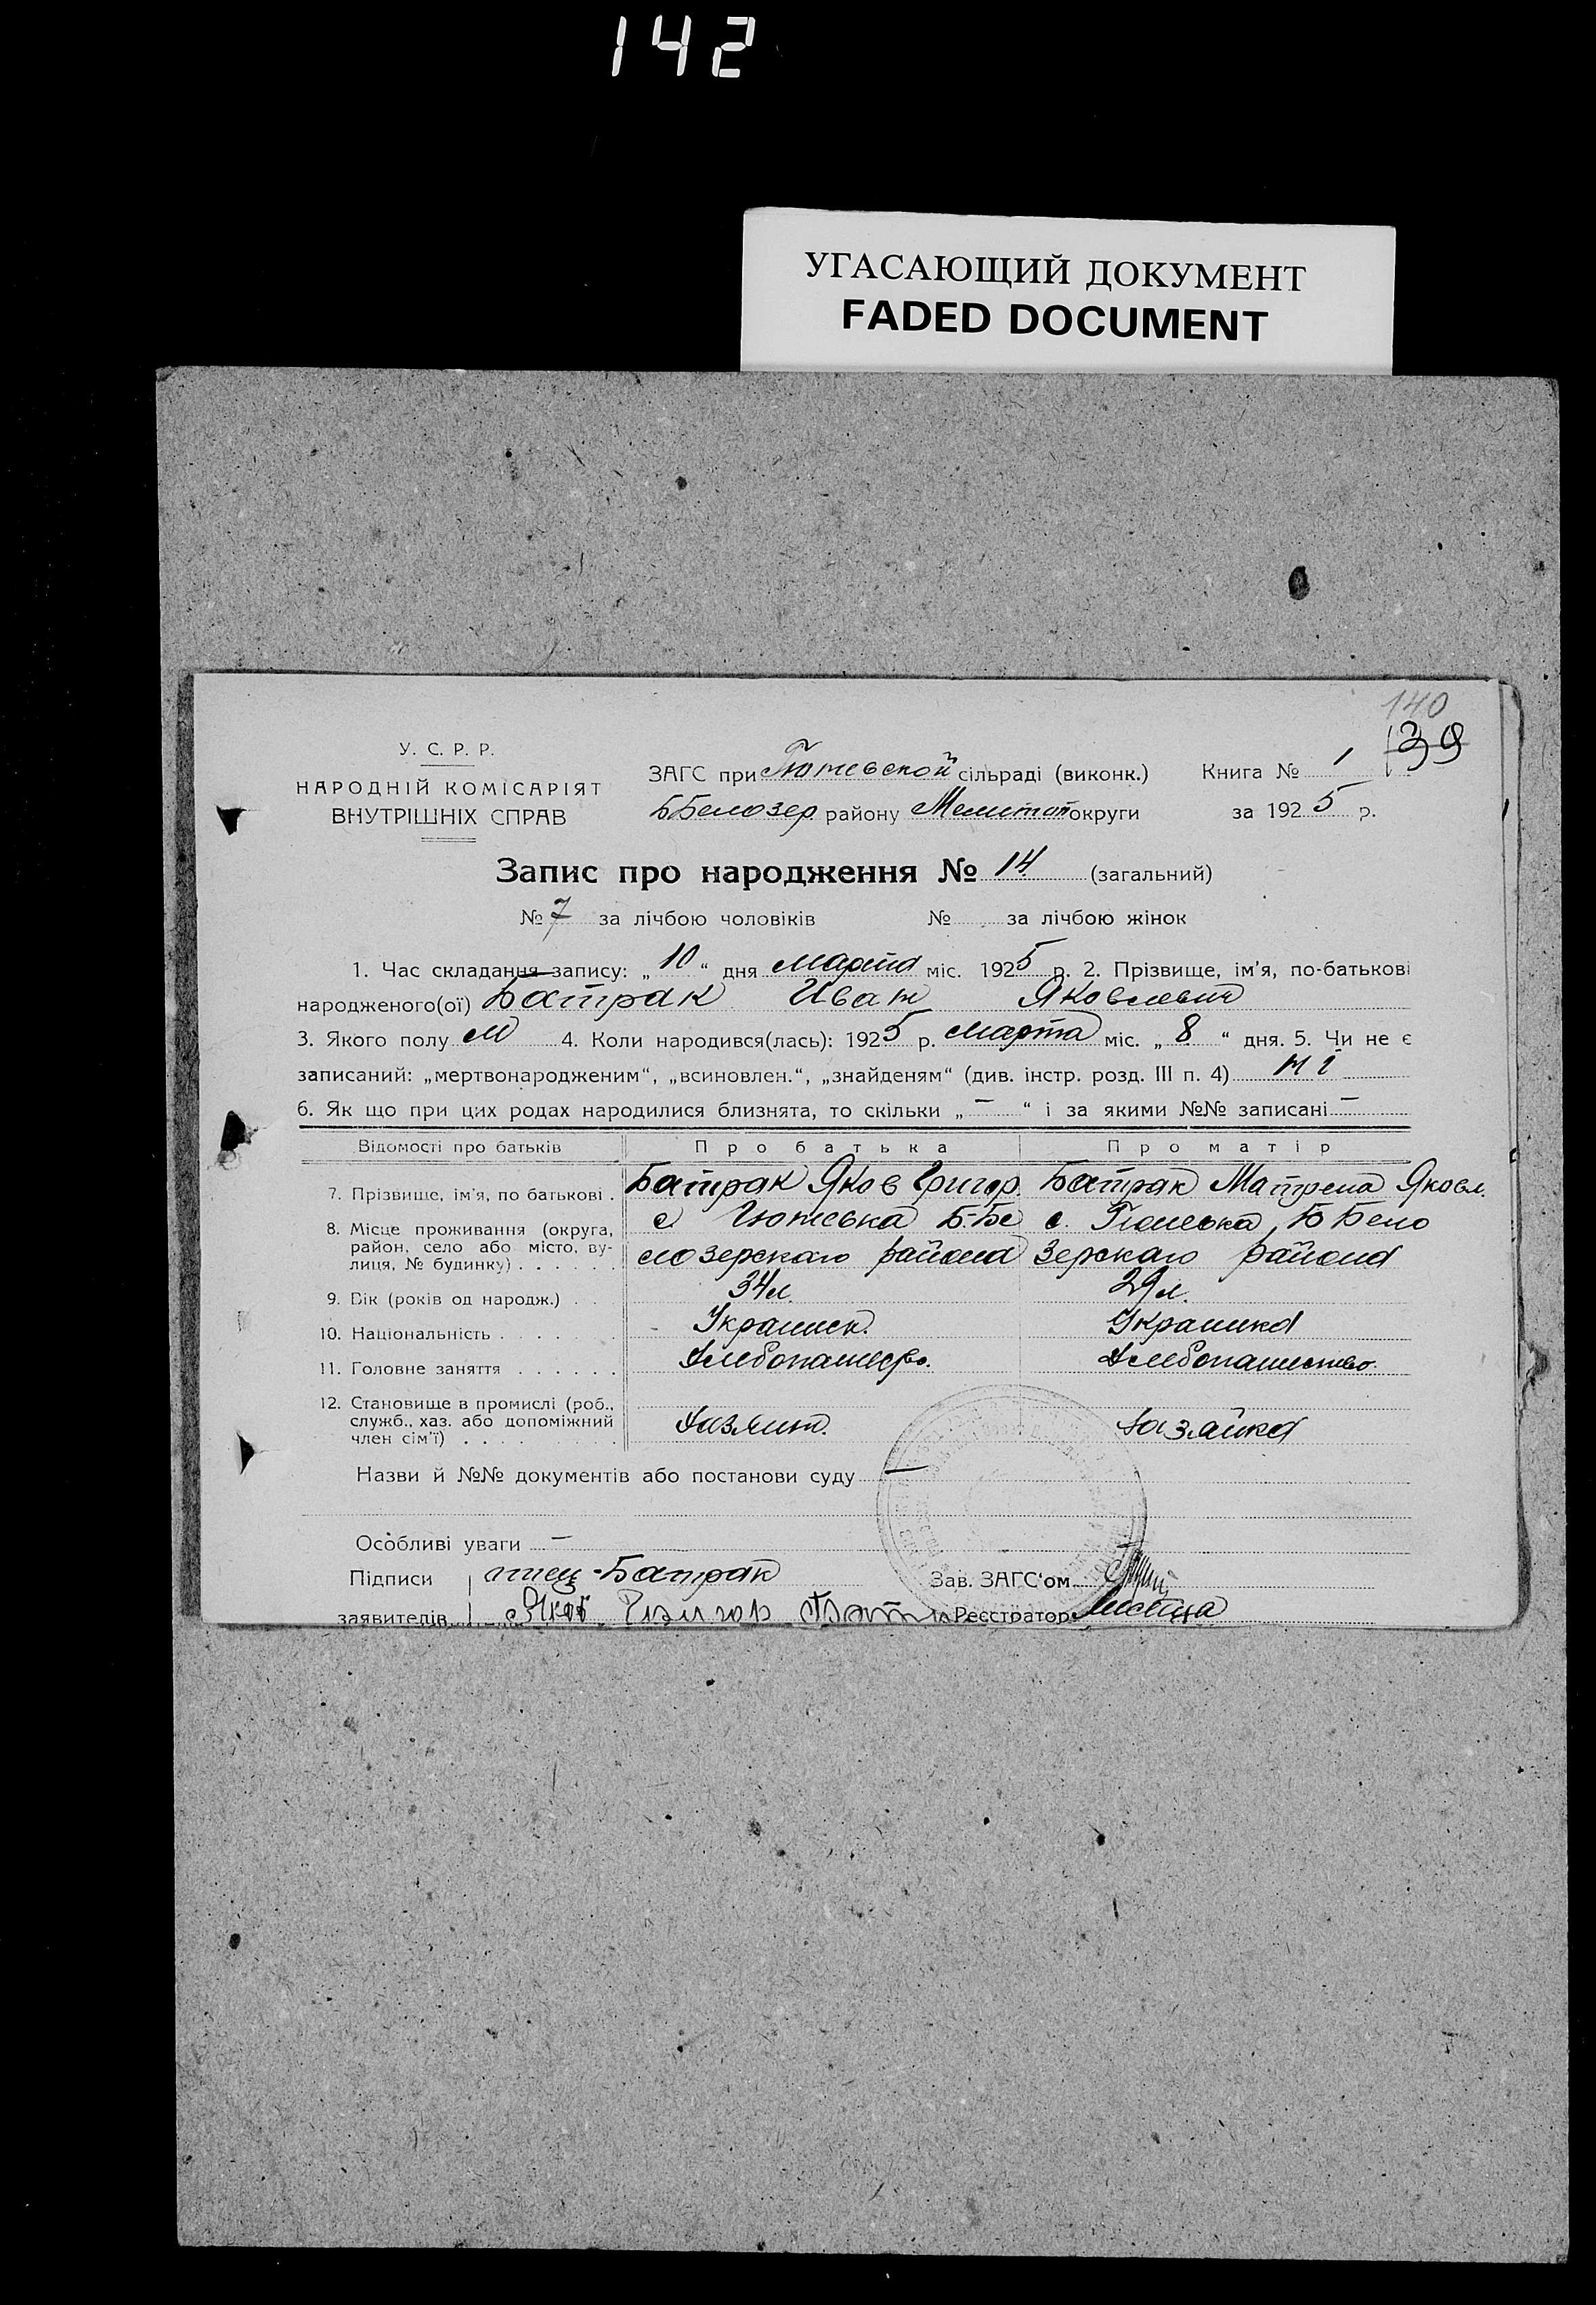 142
УГАСАЮЩИЙ ДОКУМЕНТ
FADED DOCUMENT
140
139
У. С. Р. Р.
НАРОДНІЙ КОМІСАРІЯТ
ВНУТРІШНІХ СПРАВ
ЗАГС при Гюневской сільраді (виконк.)
Книга № 1
Б Белозер району Мелитоп округи
за 1925 р.
Запис про народження № 14 (загальний)
№ 7 за лічбою чоловіків № за лічбою жінок
1. Час складання запису: „ 10 “ дня марта міс. 1925 р. 2. Прізвище, ім'я, по-батькові
народженого(ої) Батрак Иван Яковлевич
3. Якого полу М 4. Коли народився(лась): 1925 р. марта міс. „ 8 “ дня. 5. Чи не є
записаний: „мертвонародженим“, „всиновлен.“, „знайденям“ (див. інстр. розд. III п. 4) ні
6. Як що при цих родах народилися близнята, то скільки „ – “ і за якими №№ записані –
Відомості про батьків Про батька Про матір
7. Прізвище, ім'я, по батькові . Батрак Яков Григор. Батрак Матрена Яковл.
8. Місце проживання (округа, район, село або місто, вулиця, № будинку) . . . . . . с Гюневка Б.-Бе с. Гюневка, Б Бело
лозерскаго района зерскаго района
9. Вік (років од народж.) . . 34 л. 29 л.
10. Національність . . . . . Украинец. Украинка
11. Головне заняття . . . . . . Хлебопашество. Хлебопашество.
12. Становище в промислі (роб., служб., хаз. або допоміжний член сім'ї) . . . . Хазяин. Хазяйка
Назви й №№ документів або постанови суду –
Особливі уваги –
Підписи отец - Батрак Зав. ЗАГС'ом
заявителів Яков Григор Реєстратор